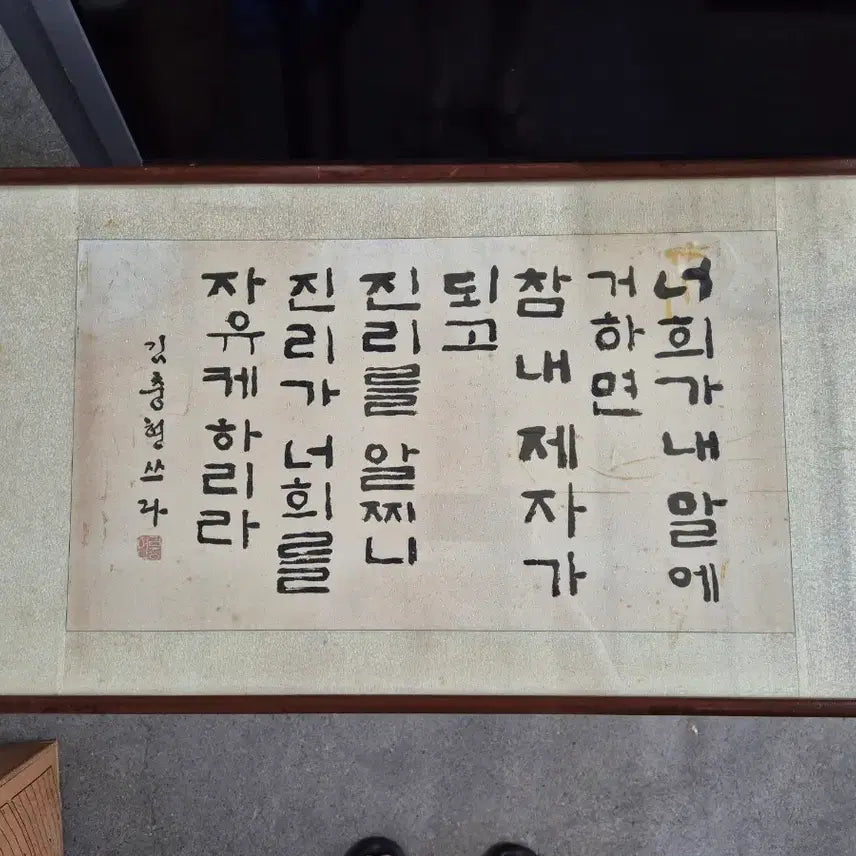 너희가 내 말에
거하면
참 내 제자가
되고
진리를 알찌니
진리가 너희를
자유케 하리라
김충현 쓰다